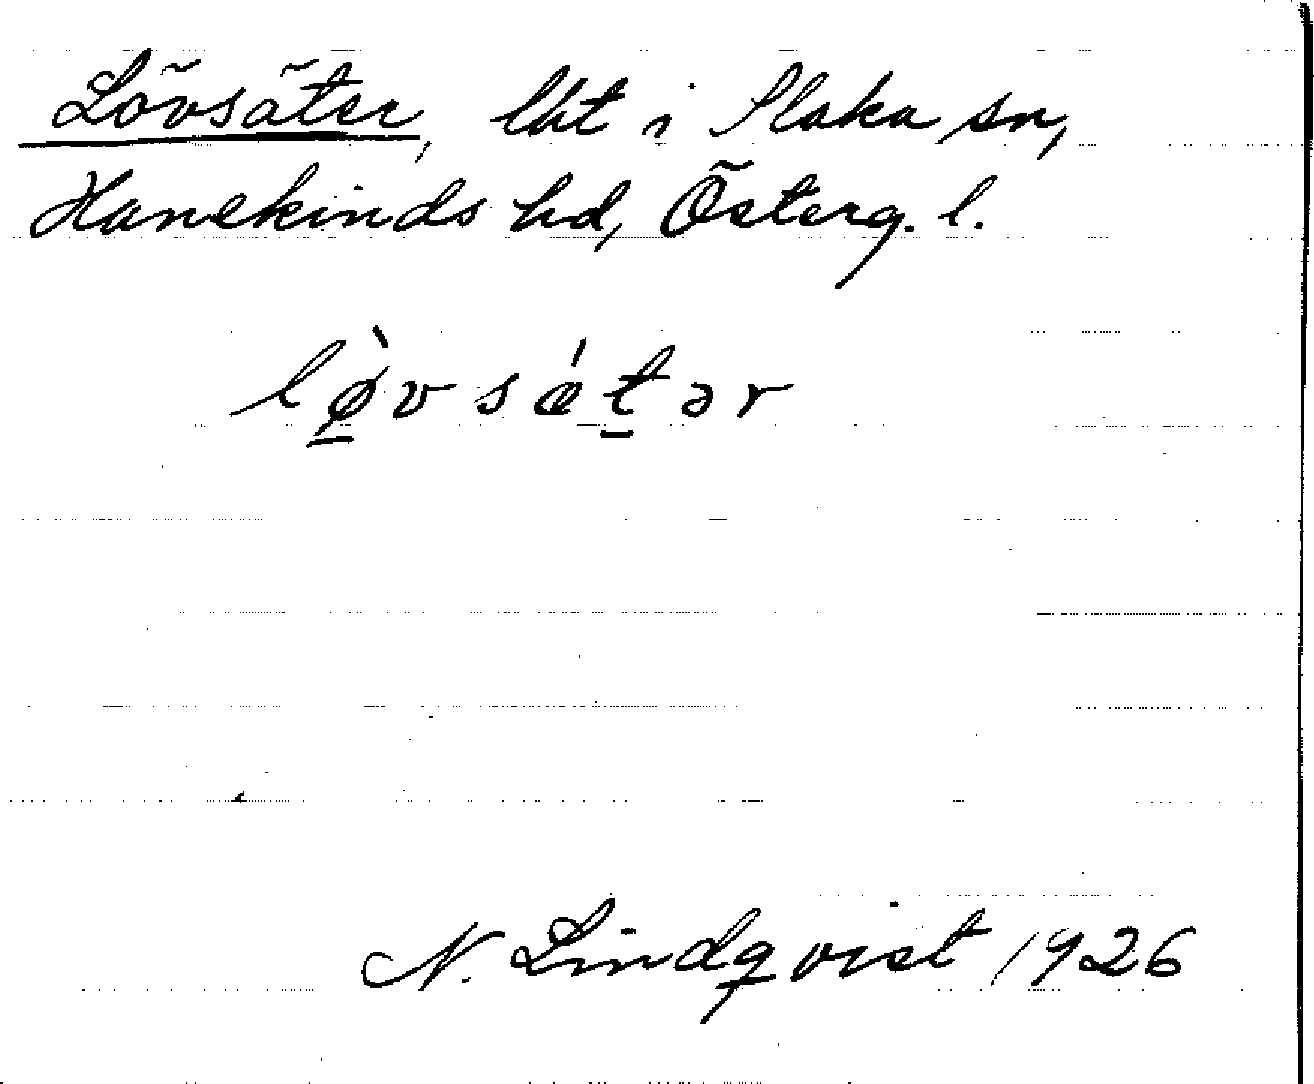 Lövsäter, lht i Slaka sn,
Hanekinds hd, Österg. l.
lø̠̀vsǽt̠ər
N. Lindqvist 1926